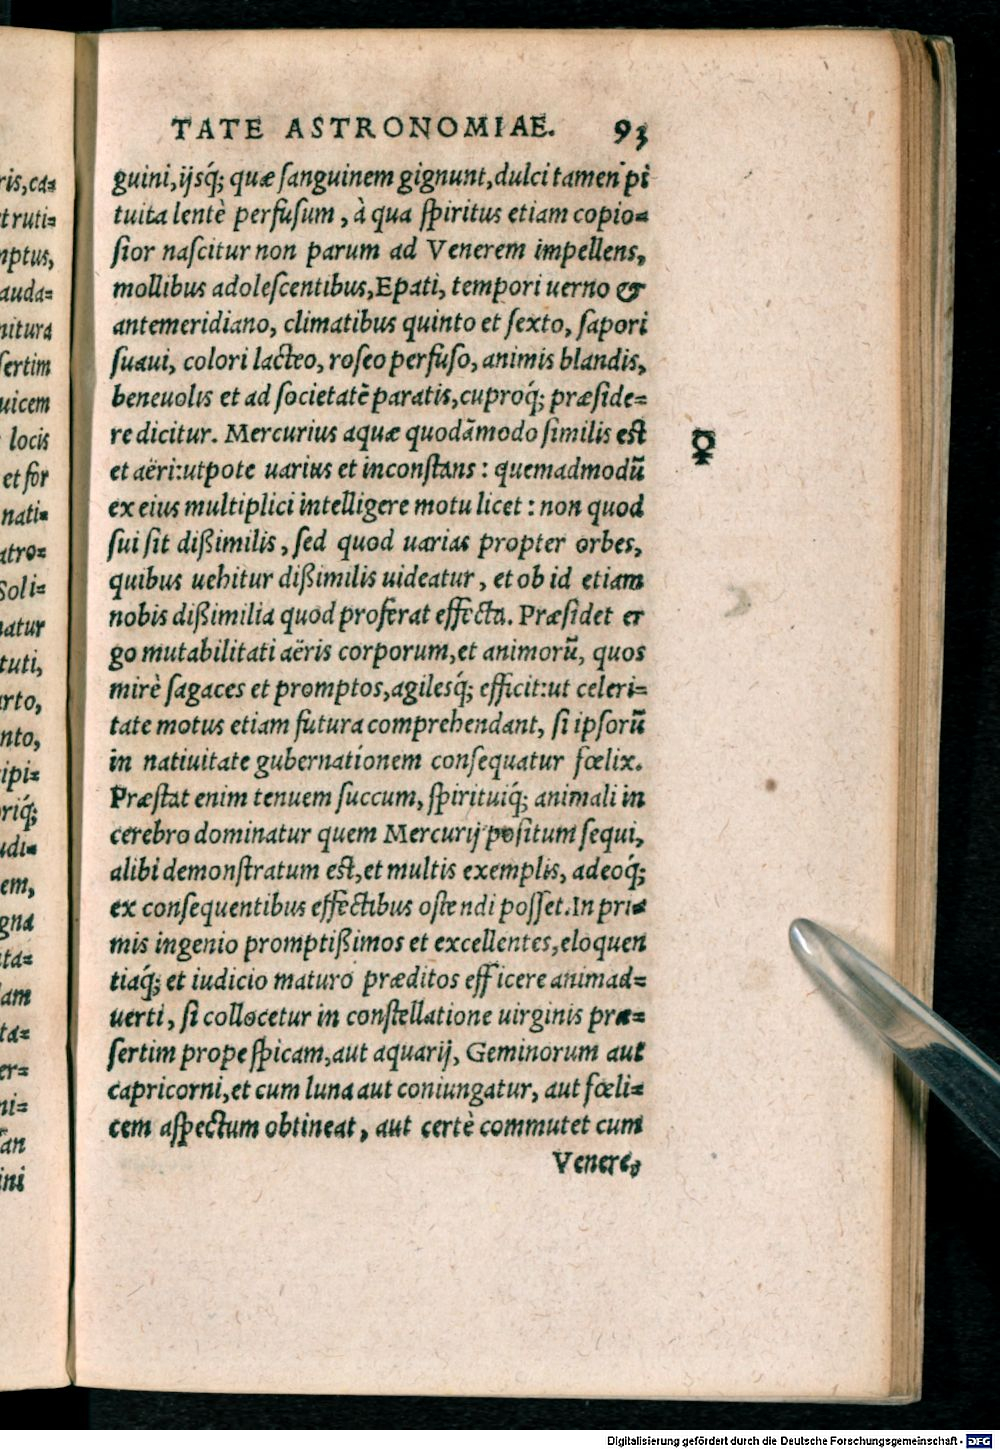 TATE ASTRONOMIAE. 93
guini, ijsq́; quæ sanguinem gignunt, dulci tamen pi
tuita lentè perfusum, à qua spiritus etiam copio=
sior nascitur non parum ad Venerem impellens,
mollibus adolescentibus, Epati, tempori uerno &
antemeridiano, climatibus quinto et sexto, sapori
suaui, colori lacteo, roseo perfuso, animis blandis,
beneuolis et ad societatẽ paratis, cuproq́; præside=
re dicitur. Mercurius aquæ quodãmodo similis est
et aëri: utpote uarius et inconstans: quemadmodũ
ex eius multiplici intelligere motu licet: non quod
sui sit dißimilis, sed quod uarias propter orbes,
quibus uehitur dißimilis uideatur, et ob id etiam
nobis dißimilia quod proferat effecta. Præsidet er
go mutabilitati aëris corporum, et animorũ, quos
mirè sagaces et promptos, agilesq́; efficit: ut celeri=
tate motus etiam futura comprehendant, si ipsorũ
in natiuitate gubernationem consequatur fœlix.
Præstat enim tenuem succum, spirituiq́; animali in
cerebro dominatur quem Mercurij positum sequi,
alibi demonstratum est, et multis exemplis, adeoq́;
ex consequentibus effectibus ostendi posset. In pri=
mis ingenio promptißimos et excellentes, eloquen
tiaq́; et iudicio maturo præditos efficere animad=
uerti, si collocetur in constellatione uirginis præ=
sertim prope spicam, aut aquarij, Geminorum aut
capricorni, et cum luna aut coniungatur, aut fœli=
cem aspectum obtineat, aut certè commutet cum
Venere,
☿
ris, ca=
truti=
mptus,
auda=
nitura
sertim
uicem
locis
et for
nati=
atro=
Soli=
natur
tuti,
arto,
nto,
cipi=
oriq́;
udi=
em,
gna
ta=
am
ta=
er=
ni=
an
ini
Digitalisierung gefördert durch die Deutsche Forschungsgemeinschaft - DFG